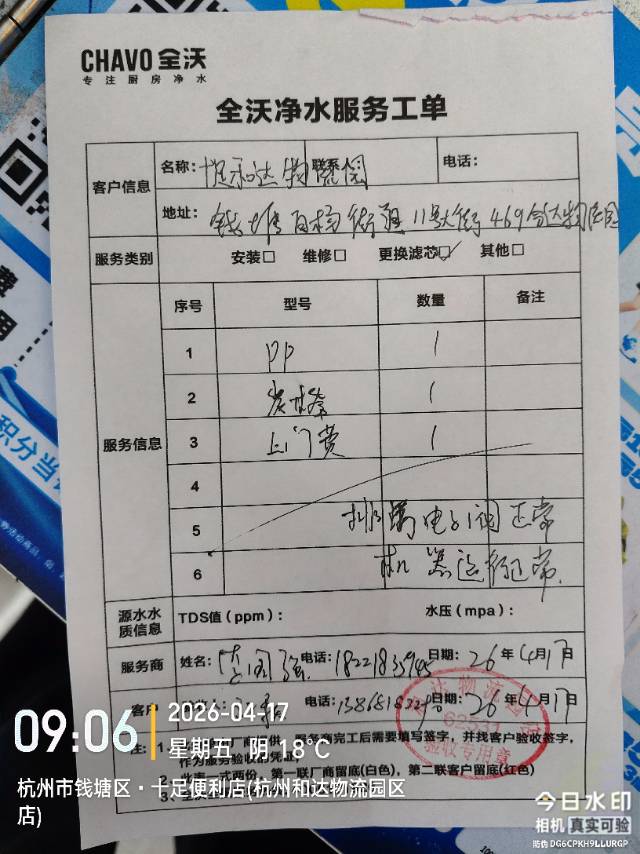 CHAVO 全沃
专注厨房净水
全沃净水服务工单
客户信息 名称: 恒和达物流园 联系人 电话:
地址: 钱塘白杨街道11号大街469和达物流园
服务类别 安装□ 维修□ 更换滤芯☑ 其他□
服务信息 序号 型号 数量 备注
1 PP 1
2 炭棒 1
3 上门费 1
4
5 电子阀正常
6 机器运行正常
源水水质信息 TDS值(ppm): 水压(mpa):
服务商 姓名: 电话: 日期: 26年4月17日
客户 电话: 日期: 26年4月17
物流园
验收专用章
注: 服务商完工后需要填写签字,并找客户验收签字,
作为服务验收的凭证,
2、此表一式两份,第一联厂商留底(白色),第二联客户留底(红色)
09:06
2026-04-17
星期五 阴 18℃
杭州市钱塘区·十足便利店(杭州和达物流园区店)
今日水印
相机 真实可验
防伪 DG6CPKH9LLURGP
积分当